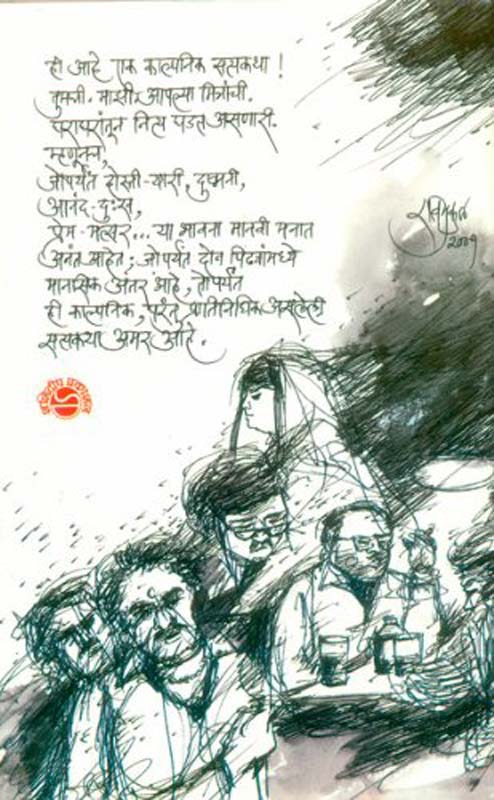 ही आहे एक काल्पनिक सत्यकथा !
तुमची. माझी. आपल्या मित्रांची.
घराघरांतून नित्य घडत असणारी.
म्हणूनच,
जोपर्यंत दोस्ती-यारी, दुष्मनी,
आनंद-दुःख,
प्रेम-मत्सर... या भावना मानवी मनात
अनंत आहेत; जोपर्यंत दोन पिढ्यांमध्ये
मानसिक अंतर आहे, तोपर्यंत
ही काल्पनिक, परंतु प्रातिनिधिक असलेली
सत्यकथा अमर आहे.
रविमुकुल
२००१